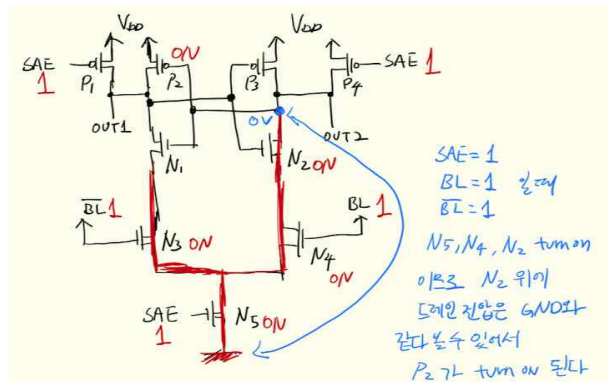 VDD
VDD
SAE
1
P1
P2
ON
P3
P4
SAE 1
OUT1
0V
OUT2
N1
N2 ON
BL 1
BL 1
N3 ON
N4
ON
SAE
1
N5 ON
SAE=1
BL=1 일때
B̅L̅=1
N5, N4, N2 turn on
이므로 N2 위에
드레인 전압은 GND와
같다 볼 수 있어서
P2가 turn on 된다